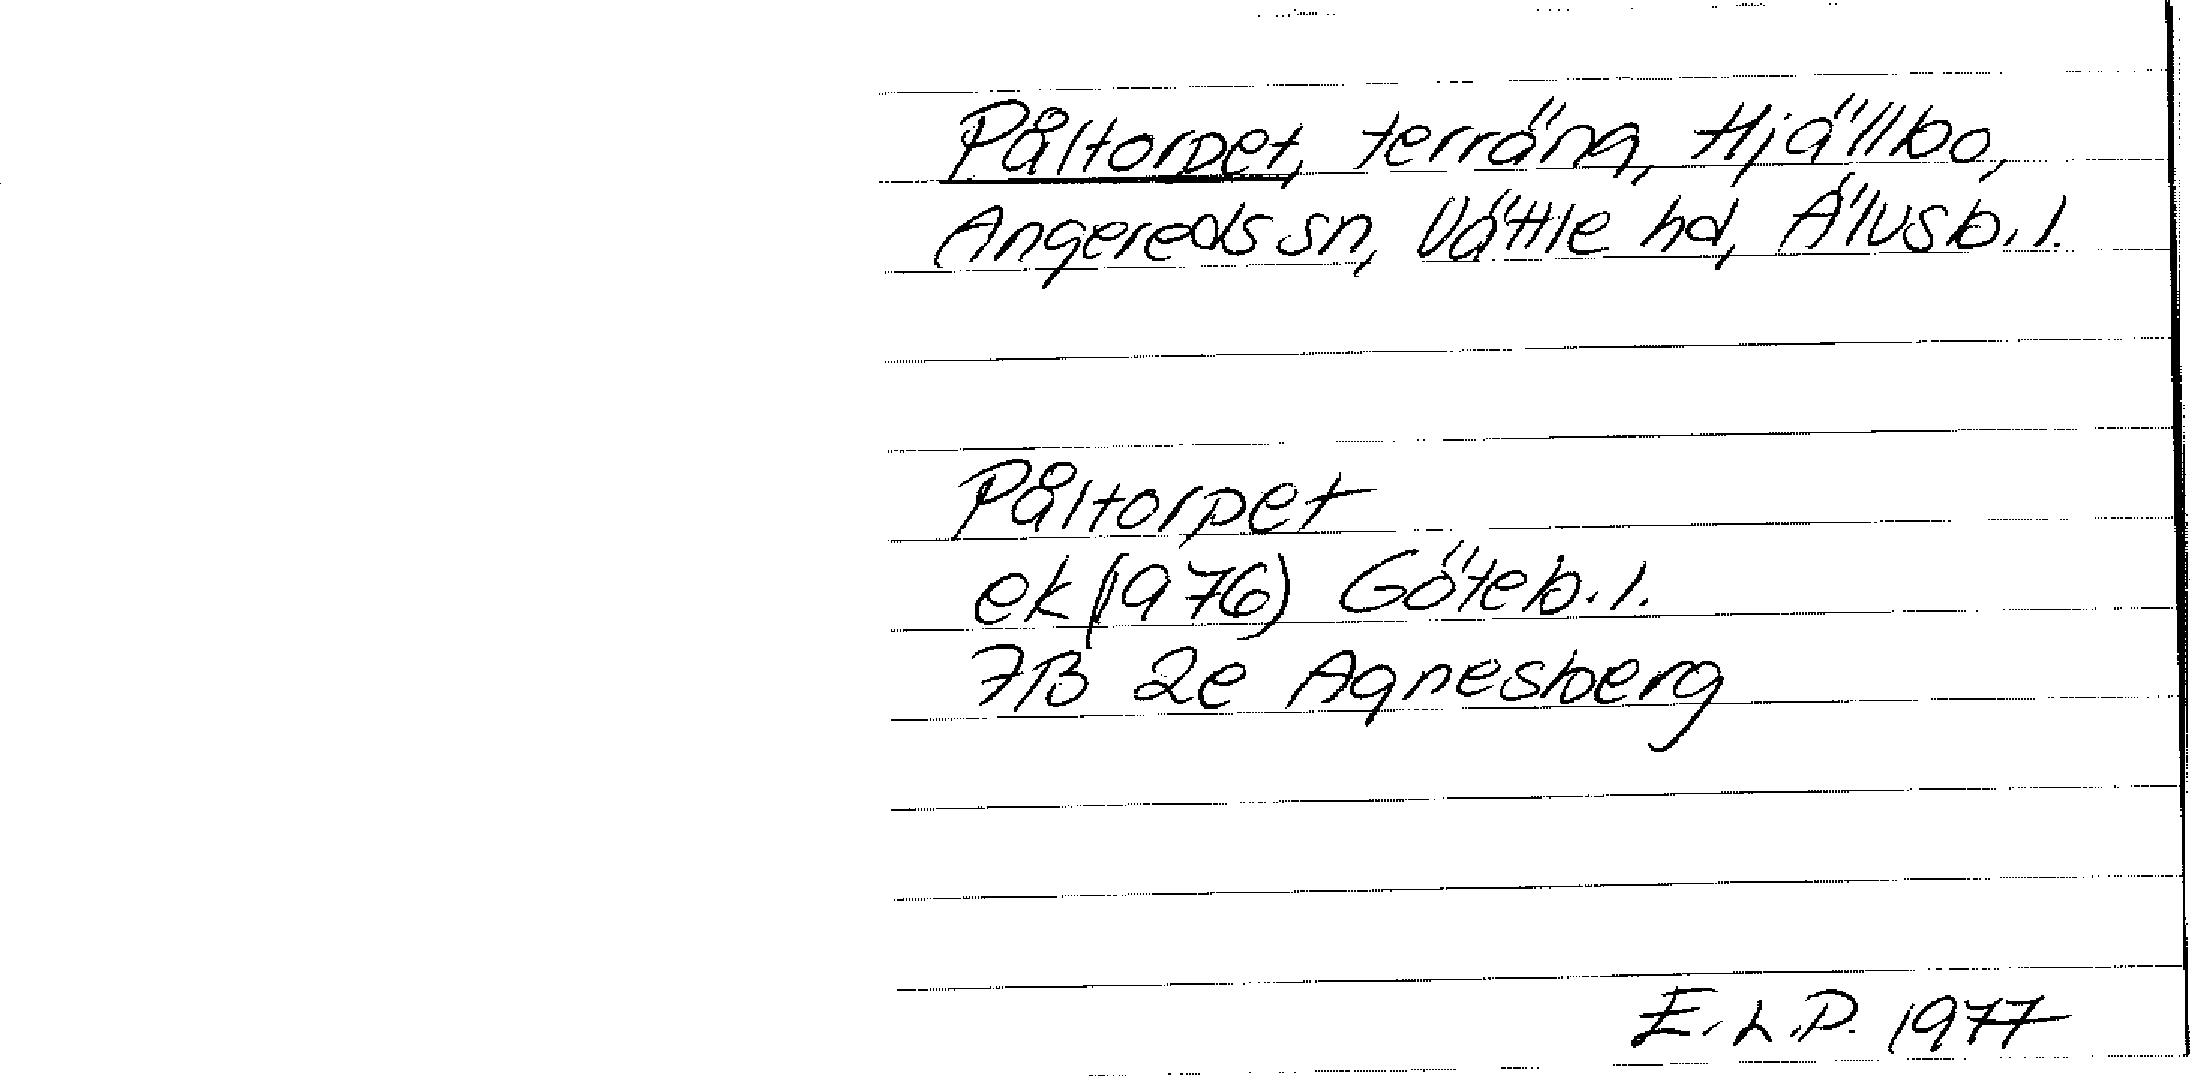 Påltorpet, terräng, Hjällbo,
Angereds sn, Vättle hd, Älvsb. l.
Påltorpet
ek (1976) Göteb. l.
7B 2e Agnesberg
E.L.P. 1977